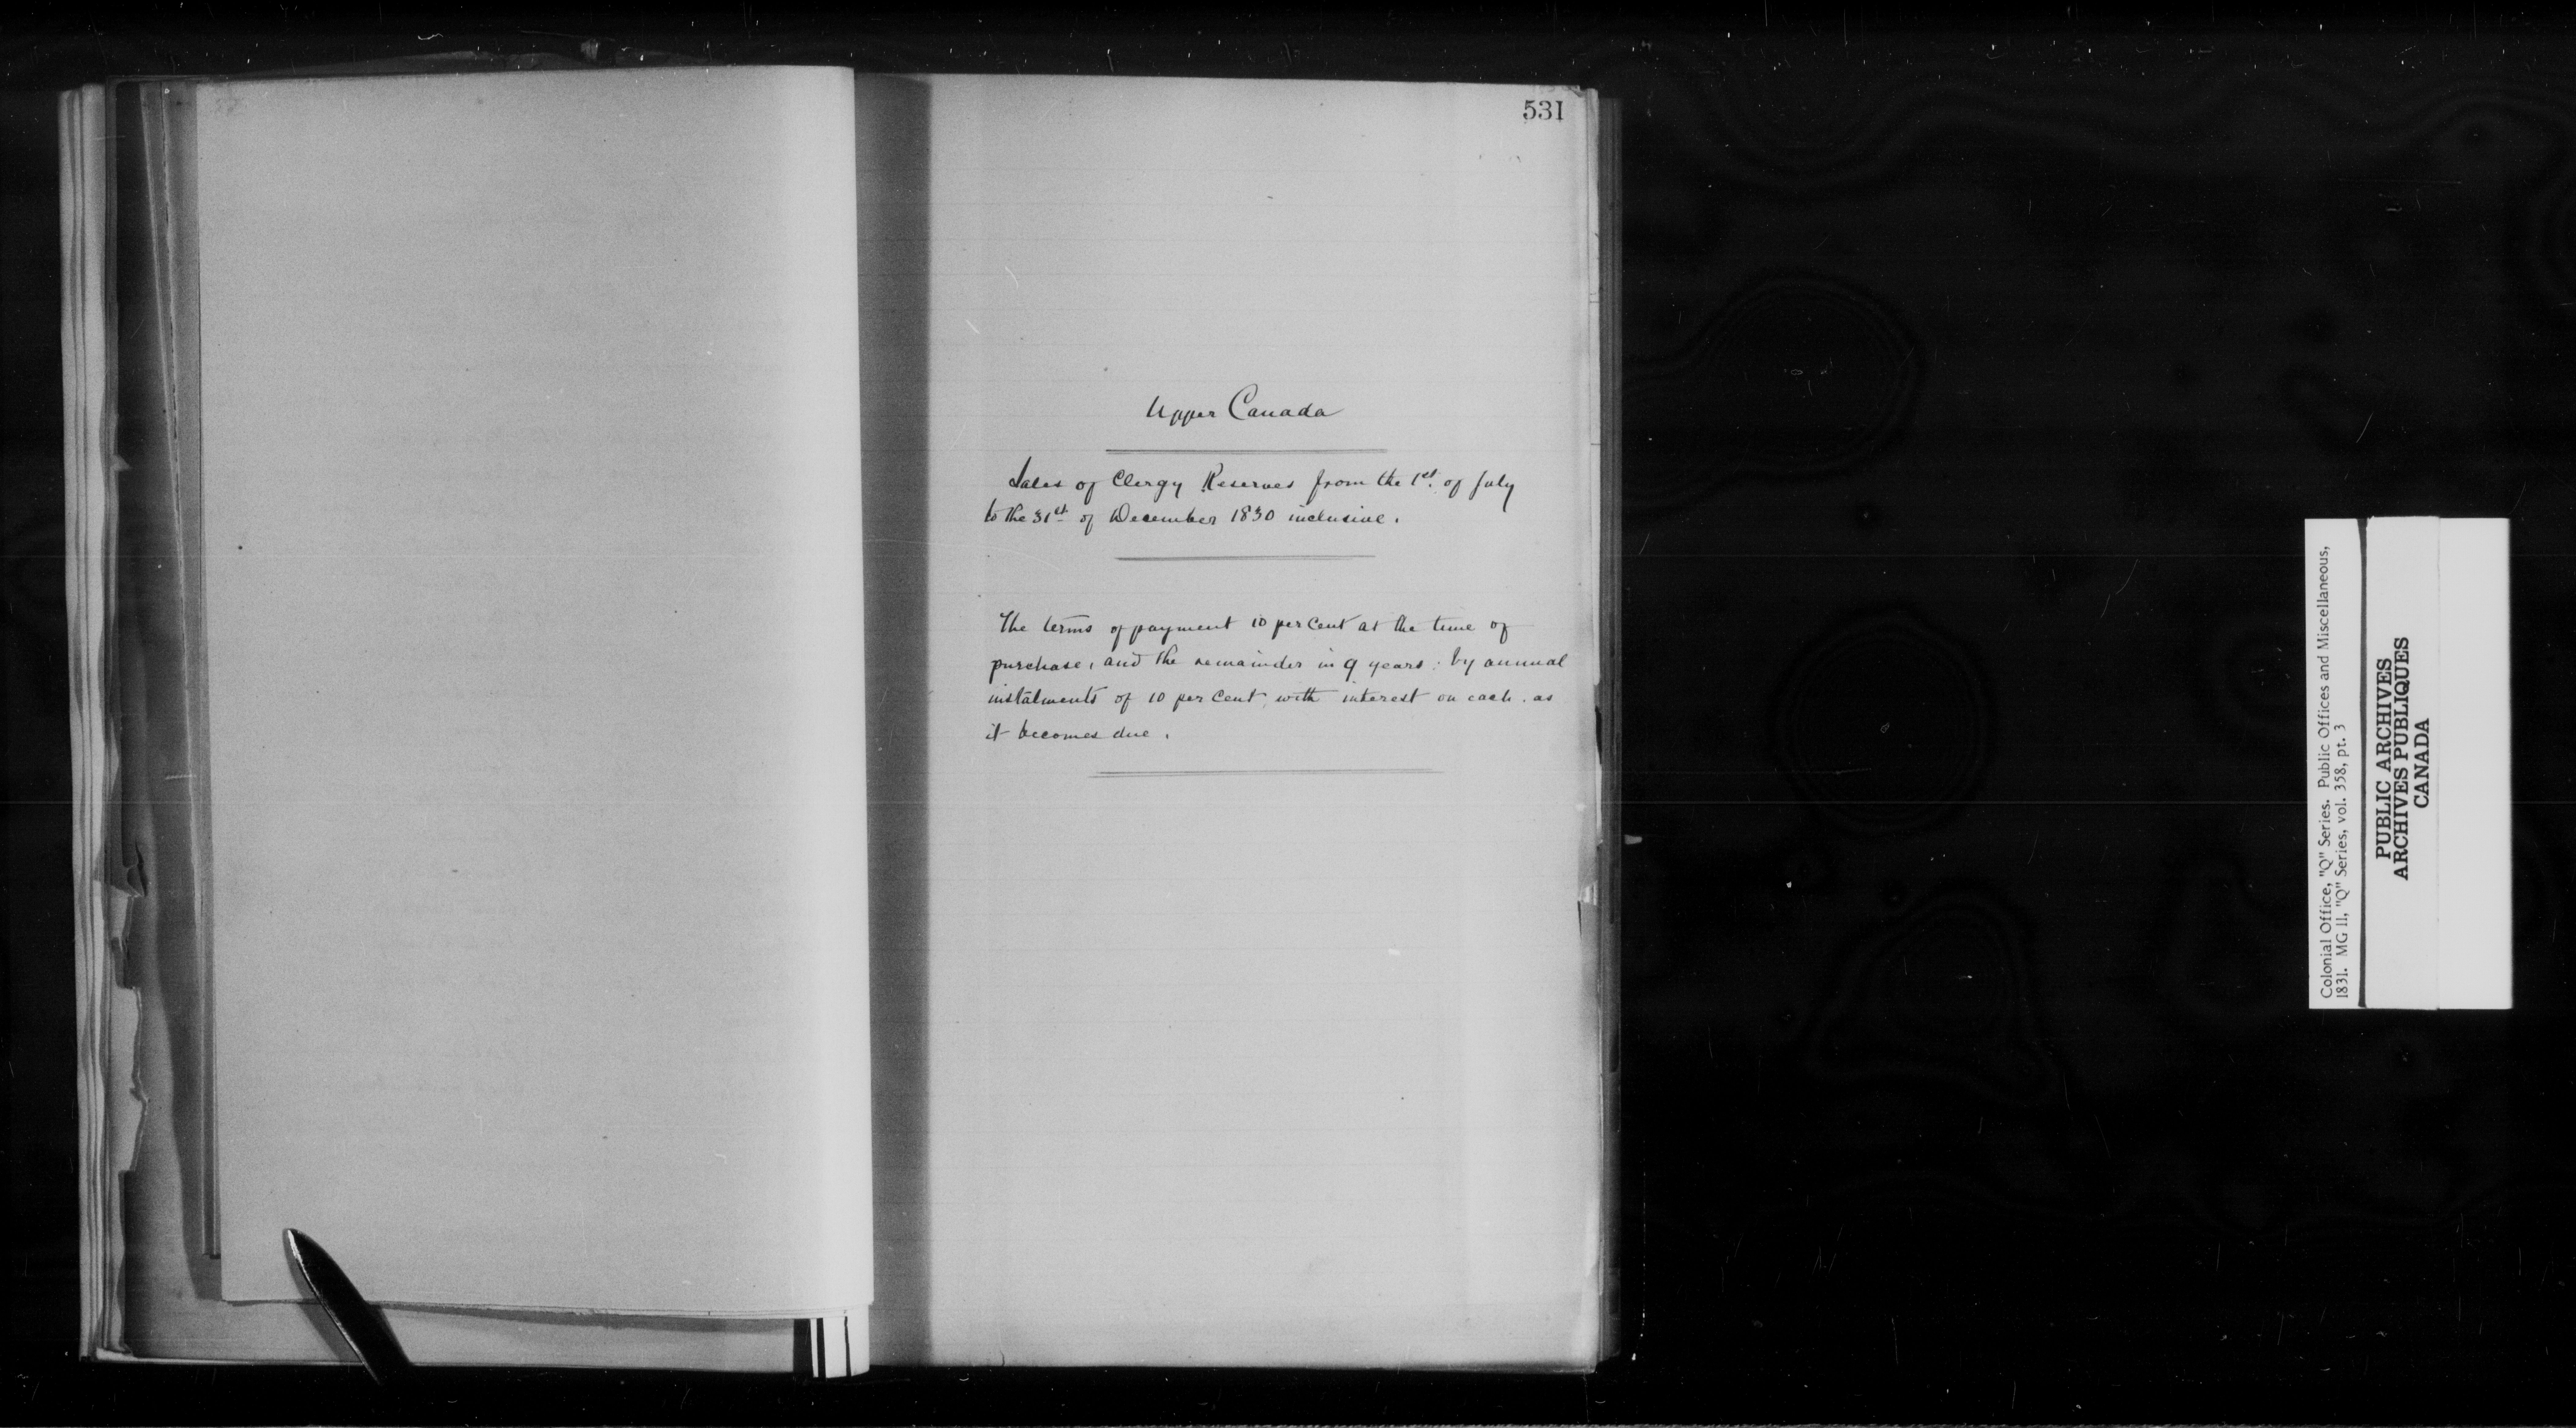 531
Upper Canada
Sales of Clergy Reserves from the 1st. of July
to the 31st of December 1830 inclusive.
The terms of payment 10 per Cent at the time of
purchase, and the remainder in 9 years: by annual
instalments of 10 per Cent, with interest on each. as
it becomes due.
Colonial Office, "Q" Series. Public Offices and Miscellaneous,
1831. MG 11, "Q" Series, vol. 358, pt. 3
PUBLIC ARCHIVES
ARCHIVES PUBLIQUES
CANADA